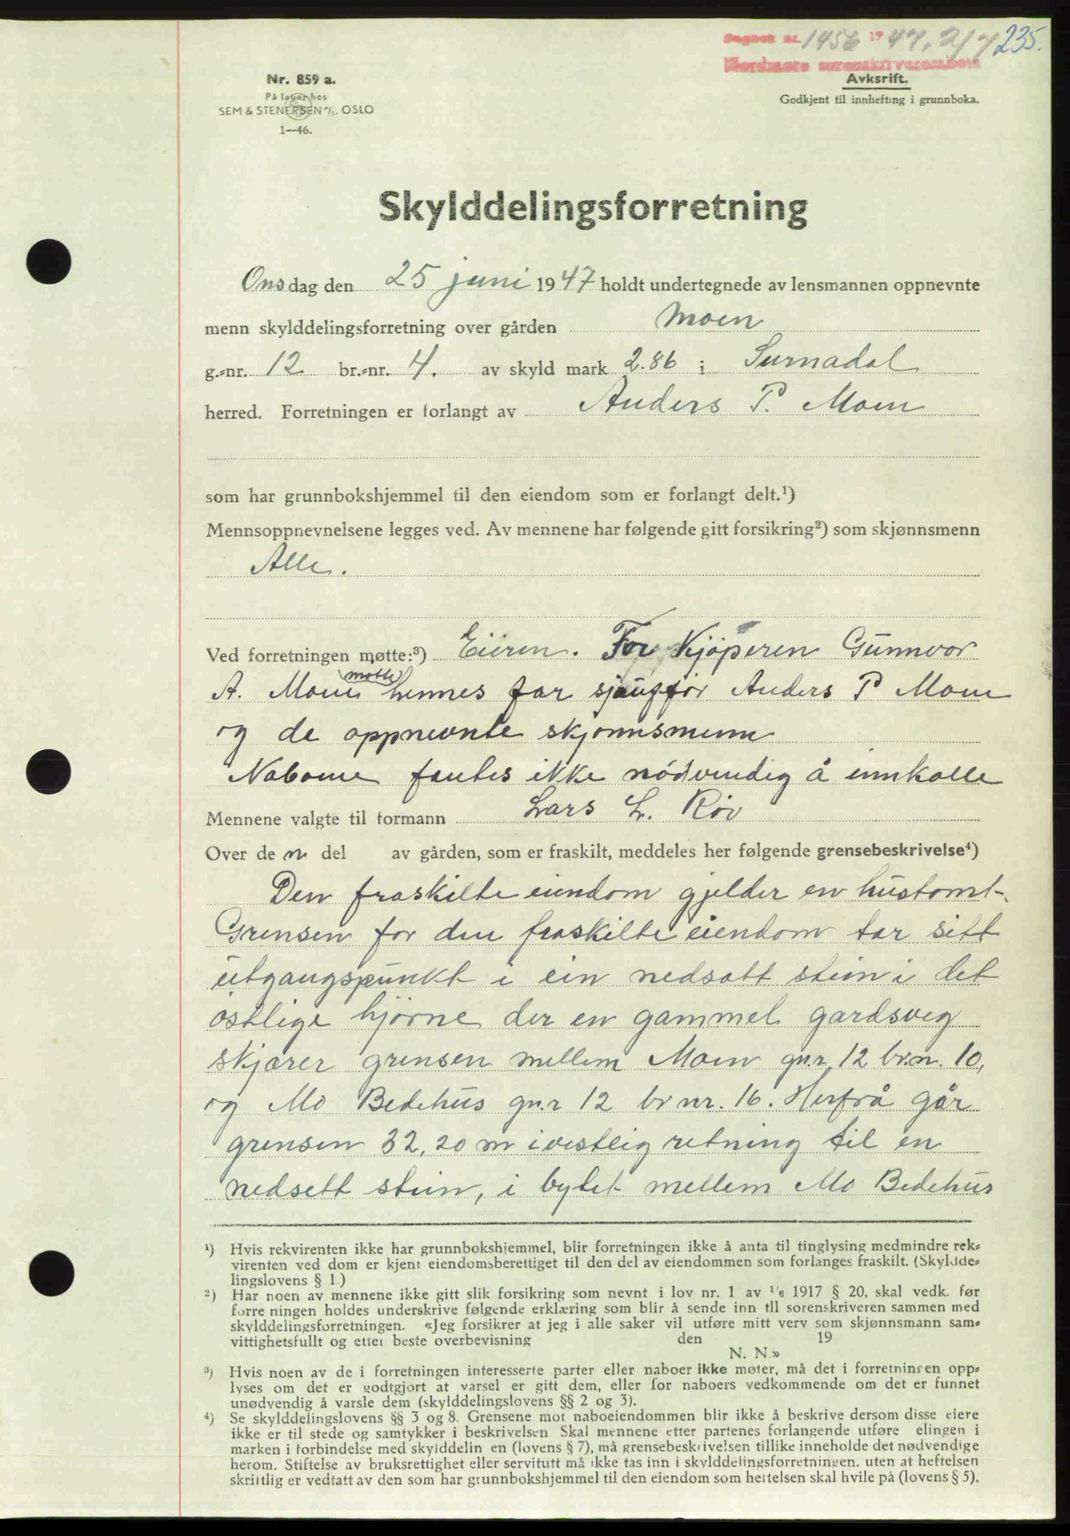 Dagbok nr. 1456 1947, 2/7 235.
Nordmøre sorenskriverembete
Nr. 859 a.
På lager hos
SEM & STENERSEN A/S. OSLO
1—46.
Avksrift.
Godkjent til innhefting i grunnboka.
Skylddelingsforretning
Onsdag den 25 juni 1947 holdt undertegnede av lensmannen oppnevnte
menn skylddelingsforretning over gården Moen
g.-nr. 12 br.-nr. 4. av skyld mark 2.86 i Surnadal
herred. Forretningen er forlangt av Anders P. Moen
som har grunnbokshjemmel til den eiendom som er forlangt delt.¹)
Mennsoppnevnelsene legges ved. Av mennene har følgende gitt forsikring²) som skjønnsmenn
Alle.
Ved forretningen møtte:³) Eieren. For Kjøperen Gunnvor
A. Moen møtte hennes far sjauffør Anders P Moen
og de oppnevnte skjønnsmenn
Naboene fantes ikke nødvendig å innkalle
Mennene valgte til formann Lars L. Røv
Over den del av gården, som er fraskilt, meddeles her følgende grensebeskrivelse⁴)
Den fraskilte eiendom gjelder en hustomt.
Grensen for den fraskilte eiendom tar sitt
utgangspunkt i ein nedsatt stein i det
østlige hjørne der en gammel gardsveg
skjærer grensen mellem Moen gn.r 12 br.n. 10,
og Mo Bedehus gn.r 12 br nr. 16. Herfrå går
grensen 32,20 m i vestlig retning til en
nedsett stein, i bytet mellem Mo Bedehus
¹) Hvis rekvirenten ikke har grunnbokshjemmel, blir forretningen ikke å anta til tinglysing medmindre rek-
virenten ved dom er kjent eiendomsberettiget til den del av eiendommen som forlanges fraskilt. (Skyldde-
lingslovens § 1.)
²) Har noen av mennene ikke gitt slik forsikring som nevnt i lov nr. 1 av 1/6 1917 § 20, skal vedk. før
forre ningen holdes underskrive følgende erklæring som blir å sende inn til sorenskriveren sammen med
skylddelingsforretningen. «Jeg forsikrer at jeg i alle saker vil utføre mitt verv som skjønnsmann sam-
vittighetsfullt og etter beste overbevisning den 19
N. N.»
³) Hvis noen av de i forretningen interesserte parter eller naboer ikke møter, må det i forretningen opp-
lyses om det er godtgjort at varsel er gitt dem, eller for naboers vedkommende om det er funnet
unødvendig å varsle dem (skylddelingslovens §§ 2 og 3).
⁴) Se skylddelingslovens §§ 3 og 8. Grensene mot naboeiendommen blir ikke å beskrive dersom disse eiere
ikke er til stede og samtykker i beskrivelsen Skal mennene etter partenes forlangende utføre elingen i
marken i forbindelse med skylddelin en (lovens § 7), må grensebeskrivelsen tillike inneholde det nødvendige
herom. Stiftelse av bruksrettighet eller servitutt må ikke tas inn i skylddelingsforretningen. uten at heftelsen
skriftlig er vedtatt av den som har grunnbokshjemmel til den eiendom som heftelsen skal hvile på (lovens § 5).